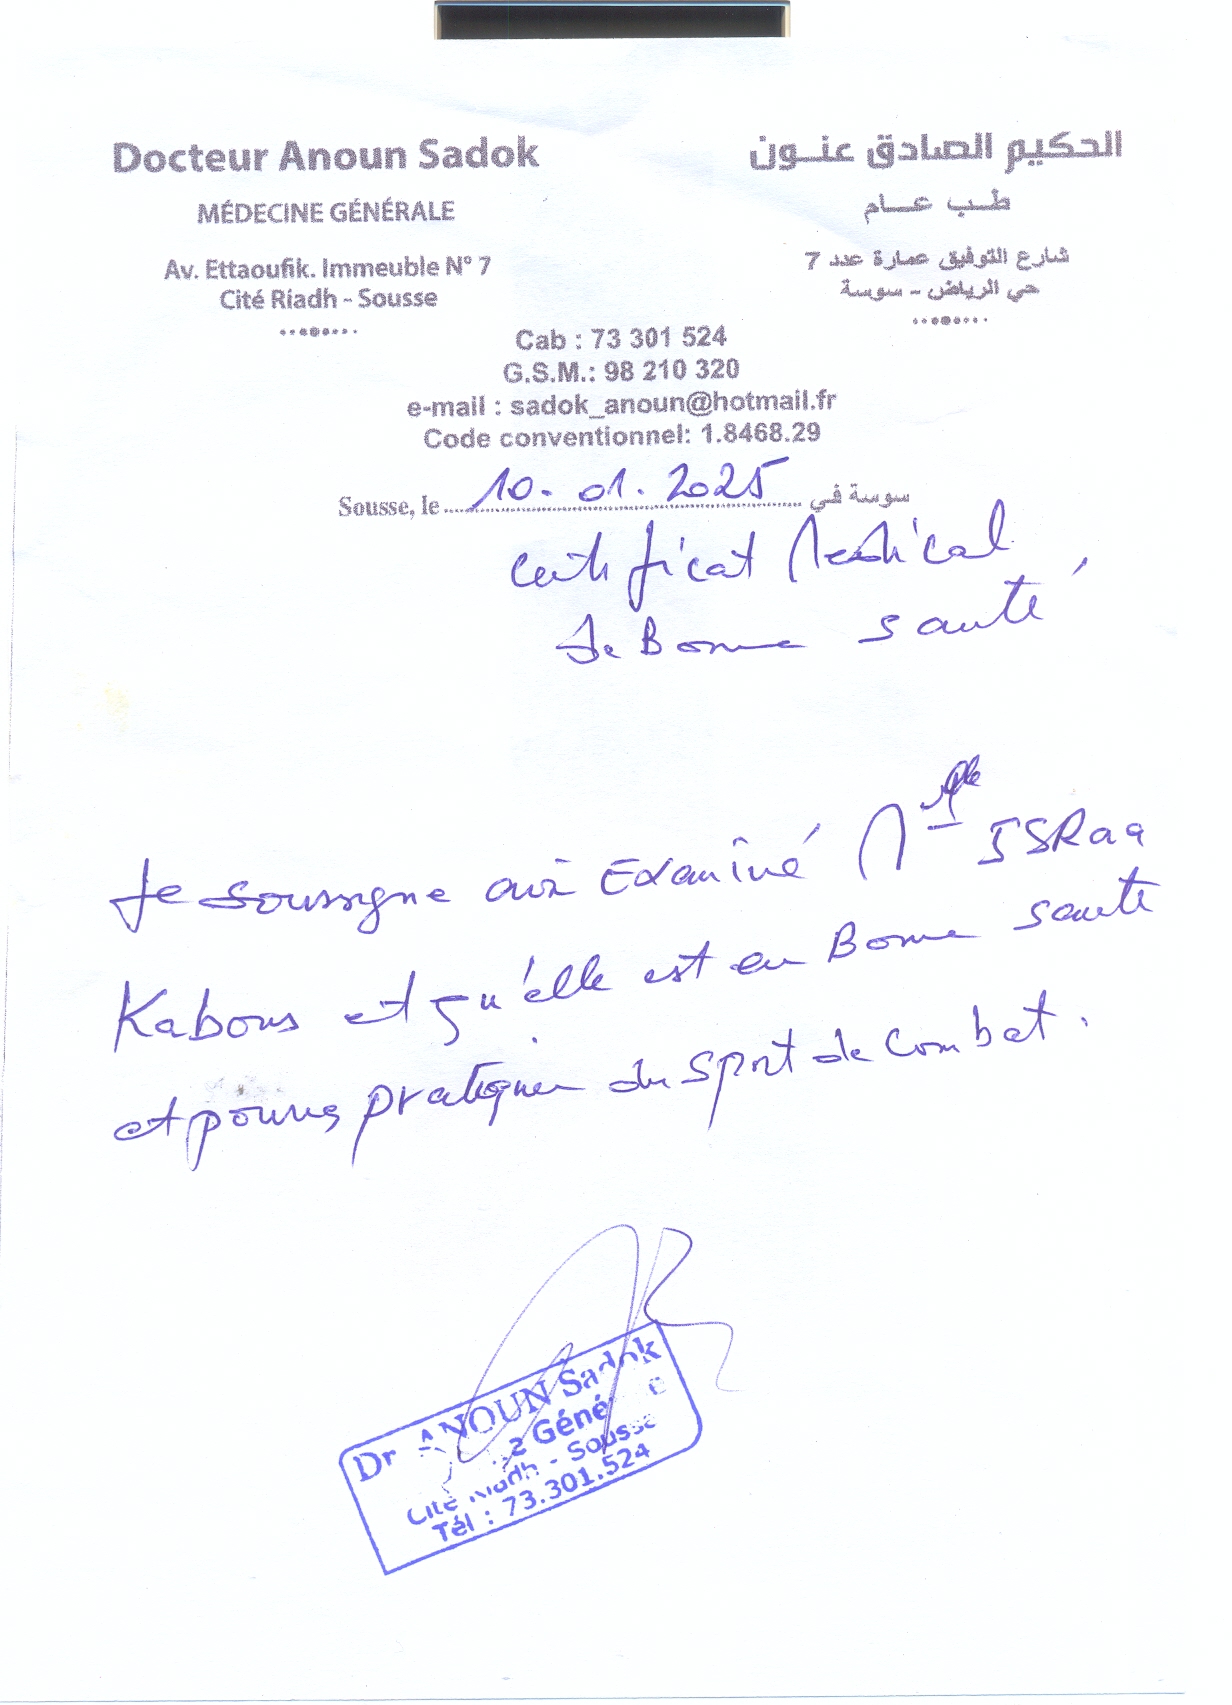 Docteur Anoun Sadok
MÉDECINE GÉNÉRALE
Av. Ettaoufik. Immeuble N° 7
Cité Riadh - Sousse
الحكيم الصادق عنون
طب عام
شارع التوفيق عمارة عدد 7
حي الرياض - سوسة
Cab : 73 301 524
G.S.M.: 98 210 320
e-mail : sadok_anoun@hotmail.fr
Code conventionnel: 1.8468.29
Sousse, le 10.01.2025 سوسة في
Certificat Medical
de Bonne santé
Je soussigne avoir Examiné Mlle ISRaa
Kabous et qu'elle est en Bonne santé
et pourra pratiquer du sport de combat.
Dr ANOUN Sadok
Géné
Cité Riadh - Sousse
Tél : 73.301.524